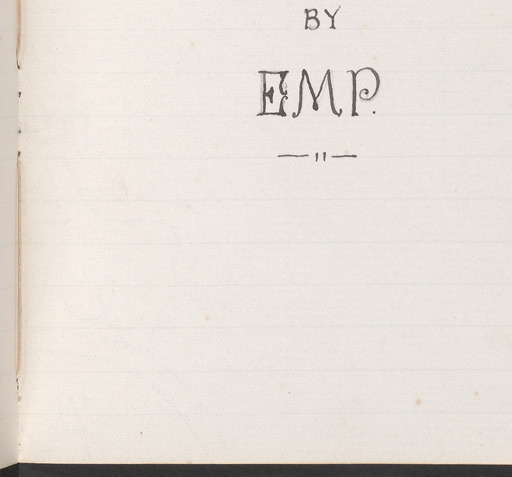 BY
EMP.
— " —